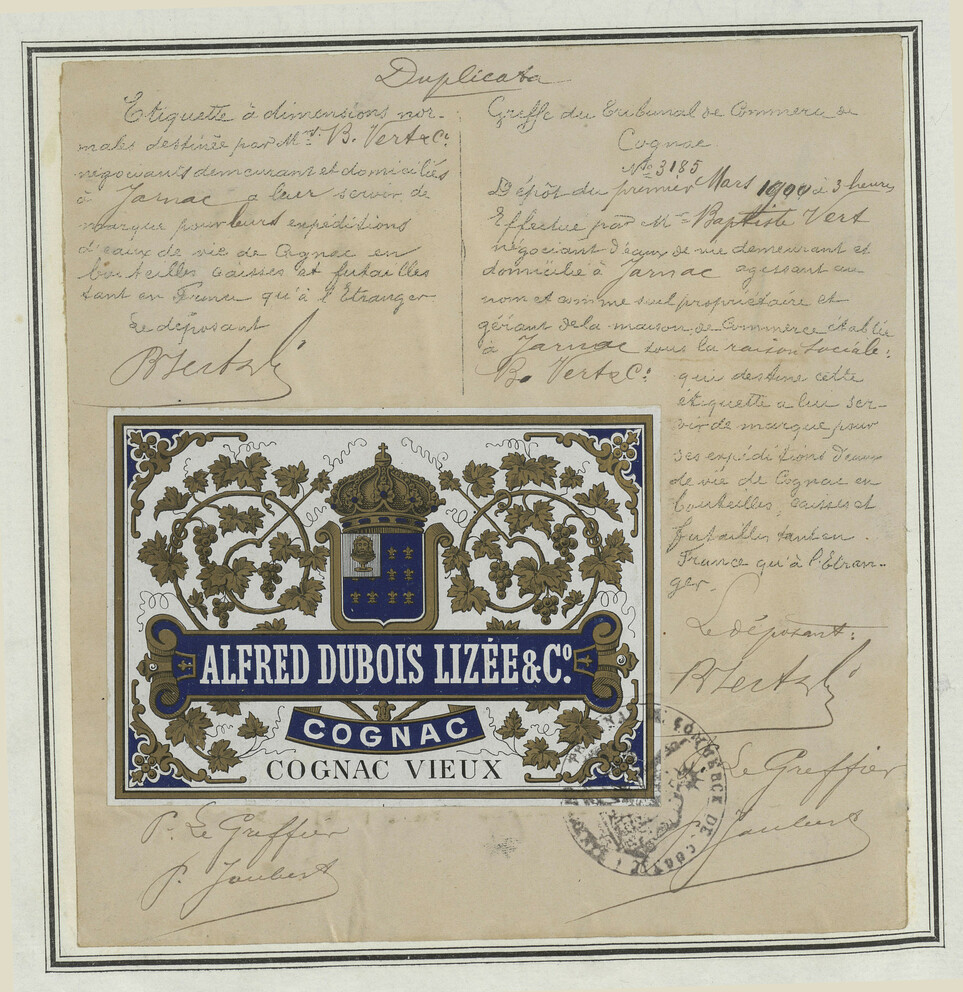 Duplicata
Etiquette à dimensions nor-
males destinée par Mrs. B. Vert & Co.
négociants demeurant et domiciliés
à Jarnac a leur servir de
marque pour leurs expéditions
d'eaux de vie de Cognac en
bouteilles caisses et futailles
tant en France qu'à l'Etranger
Le déposant
B Vert & Co
Greffe du Tribunal de Commerce de
Cognac
No 3185
Dépôt du premier Mars 1900 à 3 heures
Effectué par Mr Baptiste Vert
négociant d'eaux de vie demeurant et
domicilié à Jarnac agissant au
nom et comme seul propriétaire et
gérant de la maison de Commerce établie
à Jarnac sous la raison sociale:
B. Vert & Co. qui destine cette
étiquette a lui ser-
vir de marque pour
ses expéditions d'eaux
de vie de Cognac en
bouteilles, caisses et
futailles tant en
France qu'à l'Etran-
ger.
Le déposant:
B Vert & Co
Le Greffier
P. Joubert
ALFRED DUBOIS LIZÉE & Co.
COGNAC
COGNAC VIEUX
P. Le Greffier
P. Joubert
COMMERCE DE COGNAC